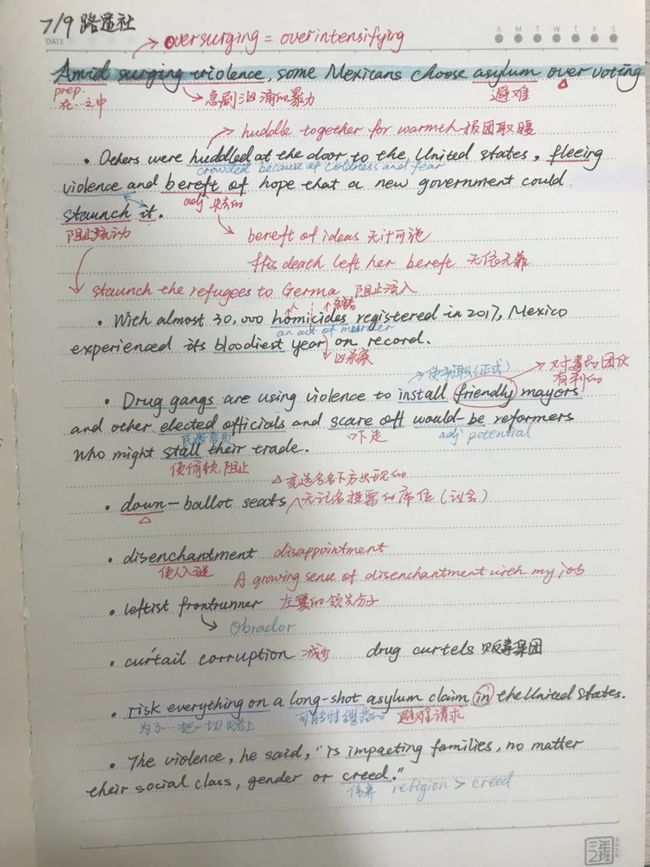 7/9 路透社
DATE
S M T W T F S
oversurging = overintensifying
Amid surging violence, some Mexicans choose asylum over voting
prep.
在…之中
急剧汹涌的暴力
避难
huddle together for warmth 报团取暖
• Others were huddled at the door to the United States, fleeing
crowded because of coldness and fear
violence and bereft of hope that a new government could
adj 失去的
staunch it.
阻止流动
bereft of ideas 无计可施
His death left her bereft 无依无靠
staunch the refugees to Germa 阻止流入
• With almost 30,000 homicides registered in 2017, Mexico
an act of murder
experienced its bloodiest year on record.
凶杀案
使就职(正式)
对毒品团伙
有利的
• Drug gangs are using violence to install friendly mayors
and other elected officials and scare off would-be reformers
民选官员
吓走
adj potential
who might stall their trade.
使停顿, 阻止
竞选名单下方出现的
• down-ballot seats 无记名投票的席位(议会)
• disenchantment disappointment
使人入迷
A growing sense of disenchantment with my job
• leftist frontrunner 左翼的领先分子
Obrador
• curtail corruption 减少 drug curtels 贩毒集团
• risk everything on a long-shot asylum claim in the United States.
为了…把一切赌上
可能性很小的
避难请求
• The violence, he said, "is impacting families, no matter
their social class, gender or creed."
信条 religion > creed
三年
2班